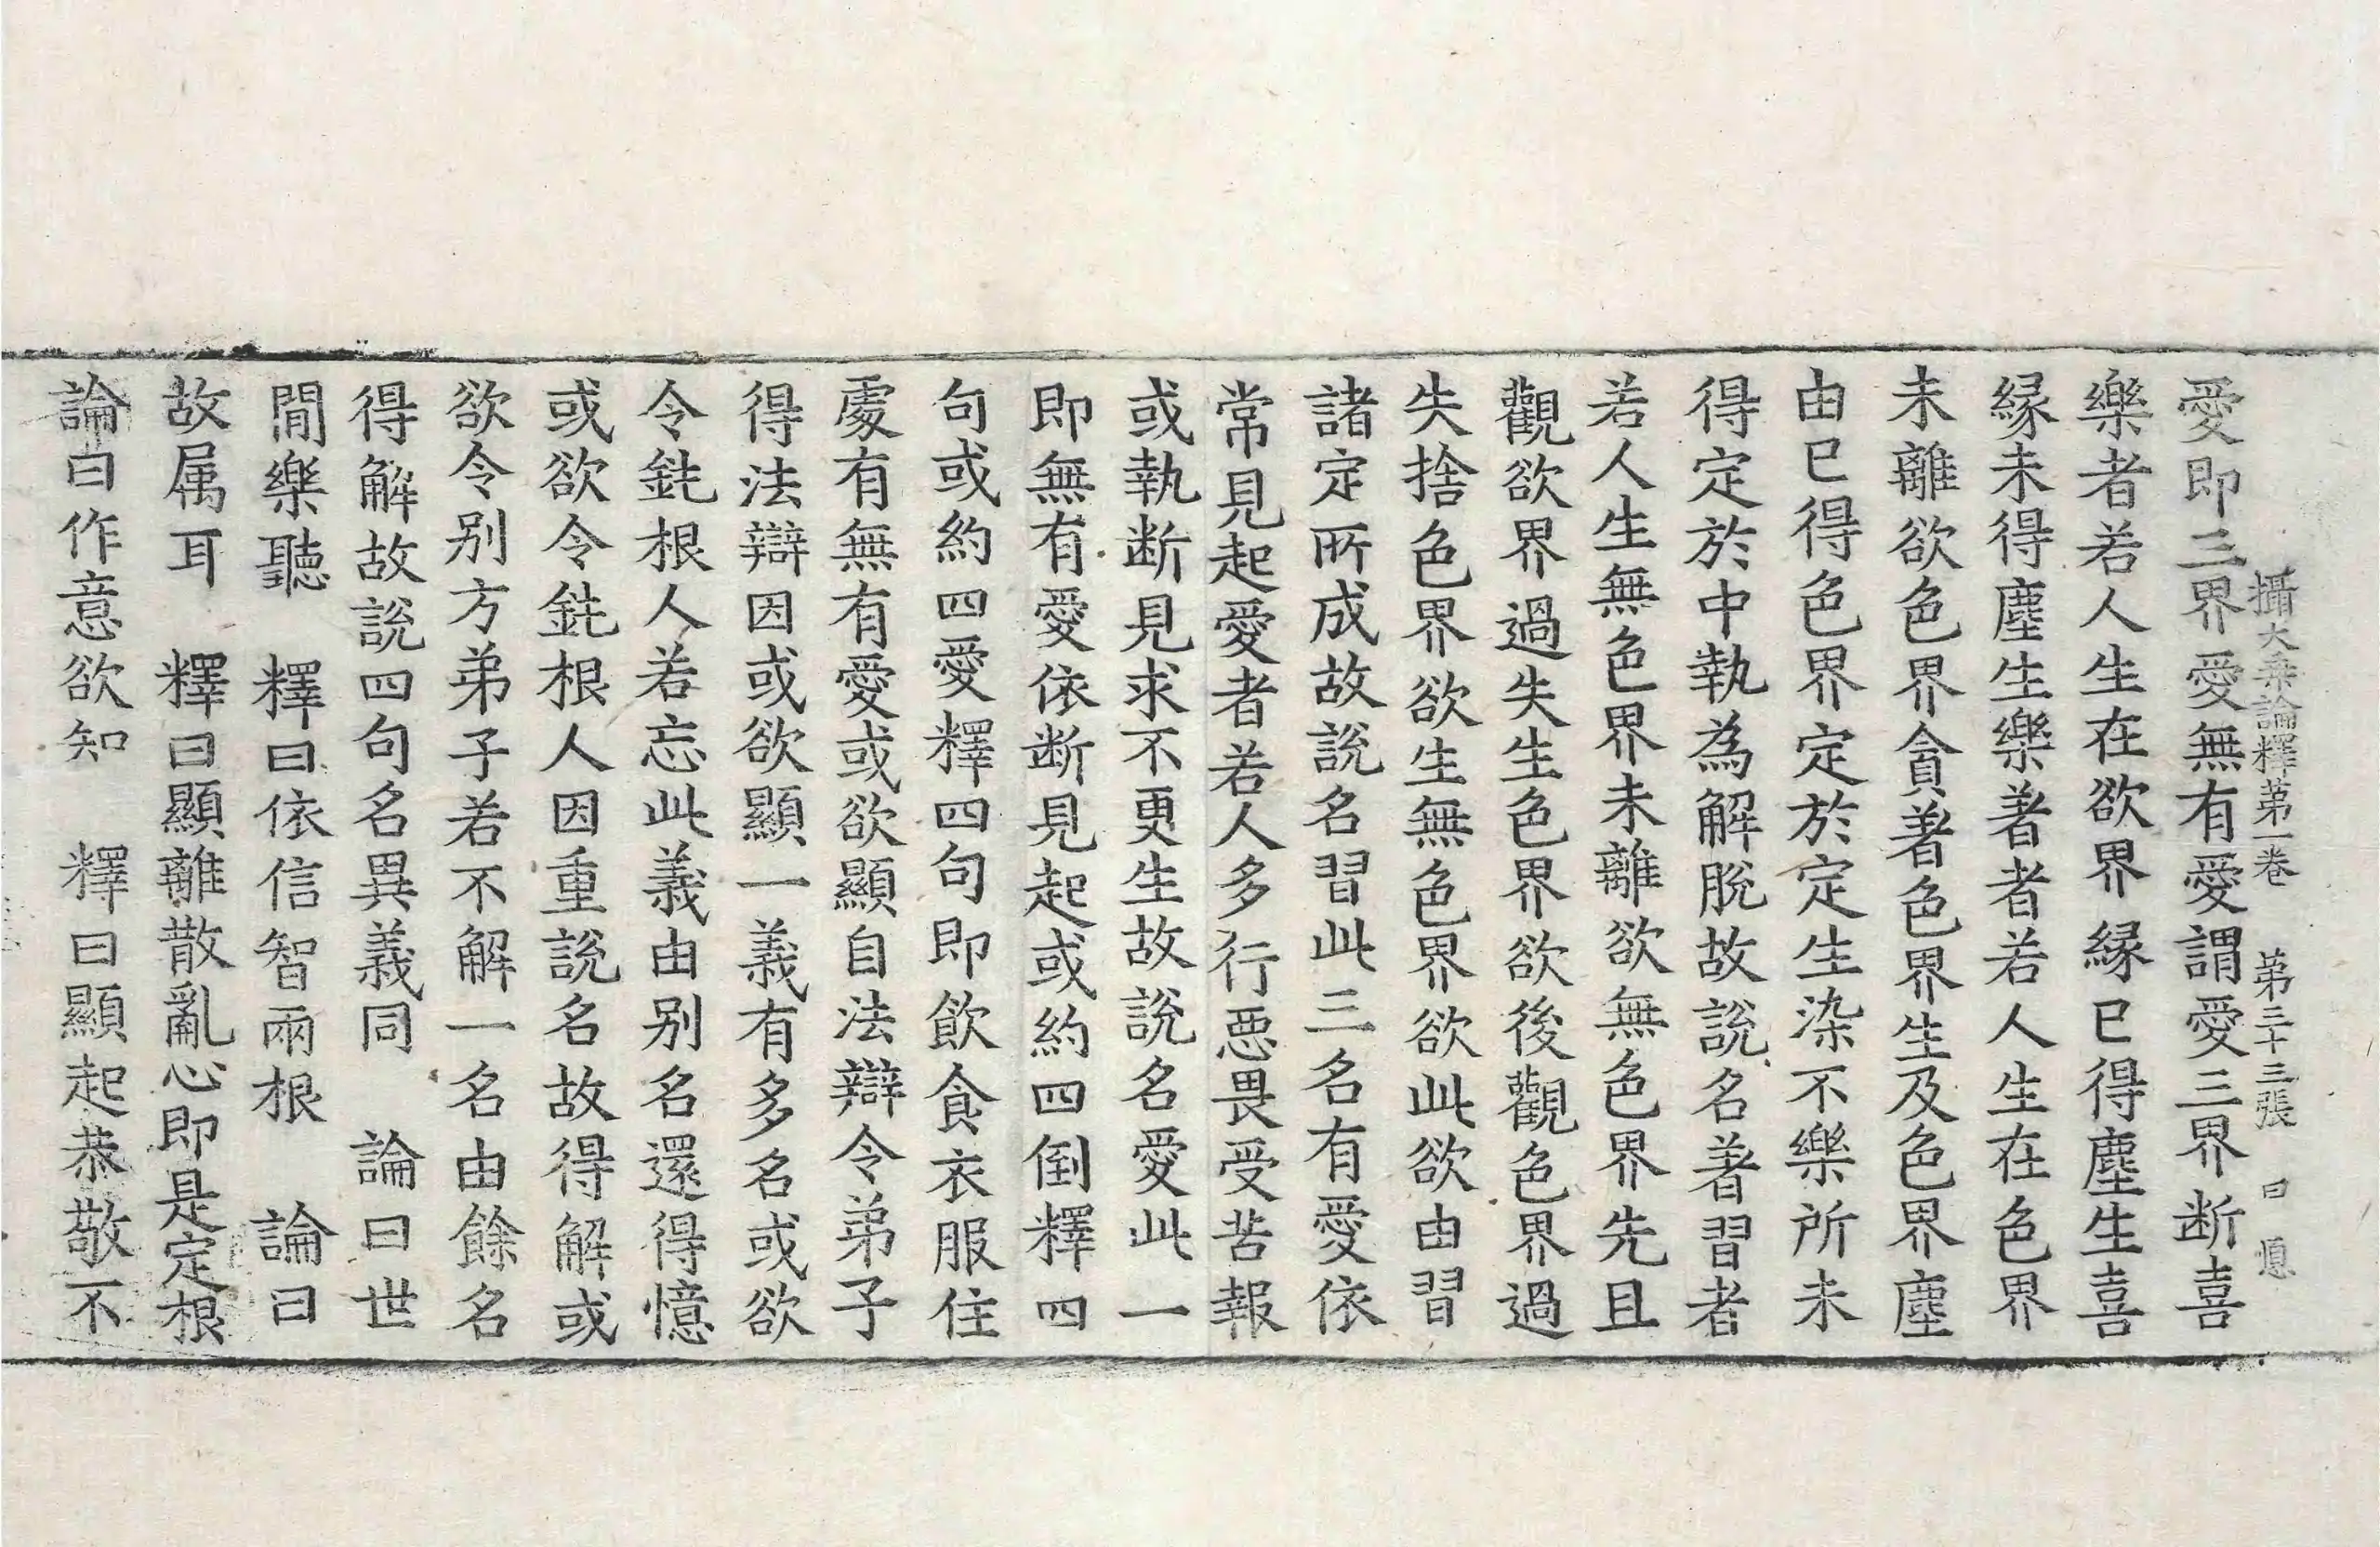 攝大乗論釋第一卷　第三十三張　曰　愼
愛即三界愛無有愛謂愛三界断喜
樂者若人生在欲界縁已得塵生喜
縁未得塵生樂著者若人生在色界
未離欲色界貪著色界生及色界塵
由已得色界定於定生染不樂所未
得定於中執為解脫故說名著習者
若人生無色界未離欲無色界先且
觀欲界過失生色界欲後觀色界過
失捨色界欲生無色界欲此欲由習
諸定所成故說名習此三名有愛依
常見起愛者若人多行惡畏受苦報
或執断見求不更生故說名愛此一
即無有愛依断見起或約四倒釋四
句或約四愛釋四句即飲食衣服住
處有無有愛或欲顯自法辯令弟子
得法辯因或欲顯一義有多名或欲
令鈍根人若忘此義由别名還得憶
或欲令鈍根人因重說名故得解或
欲令别方弟子若不解一名由餘名
得解故說四句名異義同　論曰世
間樂聽　釋曰依信智兩根　論曰
故属耳　釋曰顯離散亂心即是定根
論曰作意欲知　釋曰顯起恭敬不